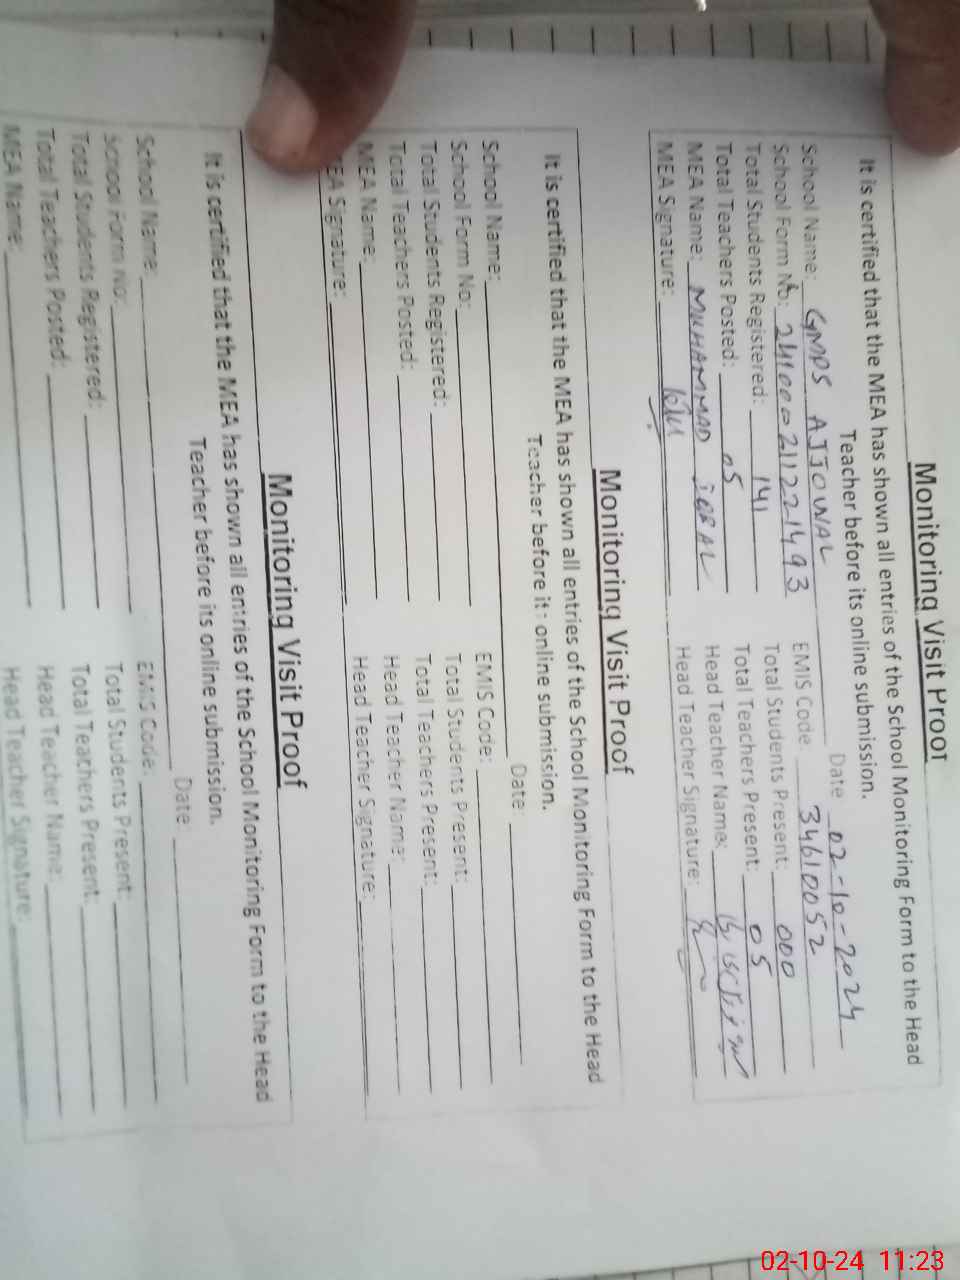 Monitoring Visit Proof
It is certified that the MEA has shown all entries of the School Monitoring Form to the Head
Teacher before its online submission.
Date 02-10-2024
School Name: GMPS AJJOWAL
EMIS Code 34610052
School Form No:
Total Students Present: 000
Total Students Registered: 141
Total Teachers Present: 05
Total Teachers Posted: 05
Head Teacher Name:
MEA Name: MUHAMMAD IQBAL
Head Teacher Signature:
MEA Signature:
Monitoring Visit Proof
It is certified that the MEA has shown all entries of the School Monitoring Form to the Head
Teacher before its online submission.
Date:
School Name:
EMIS Code:
School Form No:
Total Students Present:
Total Students Registered:
Total Teachers Present:
Total Teachers Posted:
Head Teacher Name:
MEA Name:
Head Teacher Signature:
EA Signature:
Monitoring Visit Proof
It is certified that the MEA has shown all entries of the School Monitoring Form to the Head
Teacher before its online submission.
Date:
School Name:
EMIS Code:
School Form No:
Total Students Present:
Total Students Registered:
Total Teachers Present:
Total Teachers Posted:
Head Teacher Name:
MEA Name:
Head Teacher Signature:
02-10-24 11:23